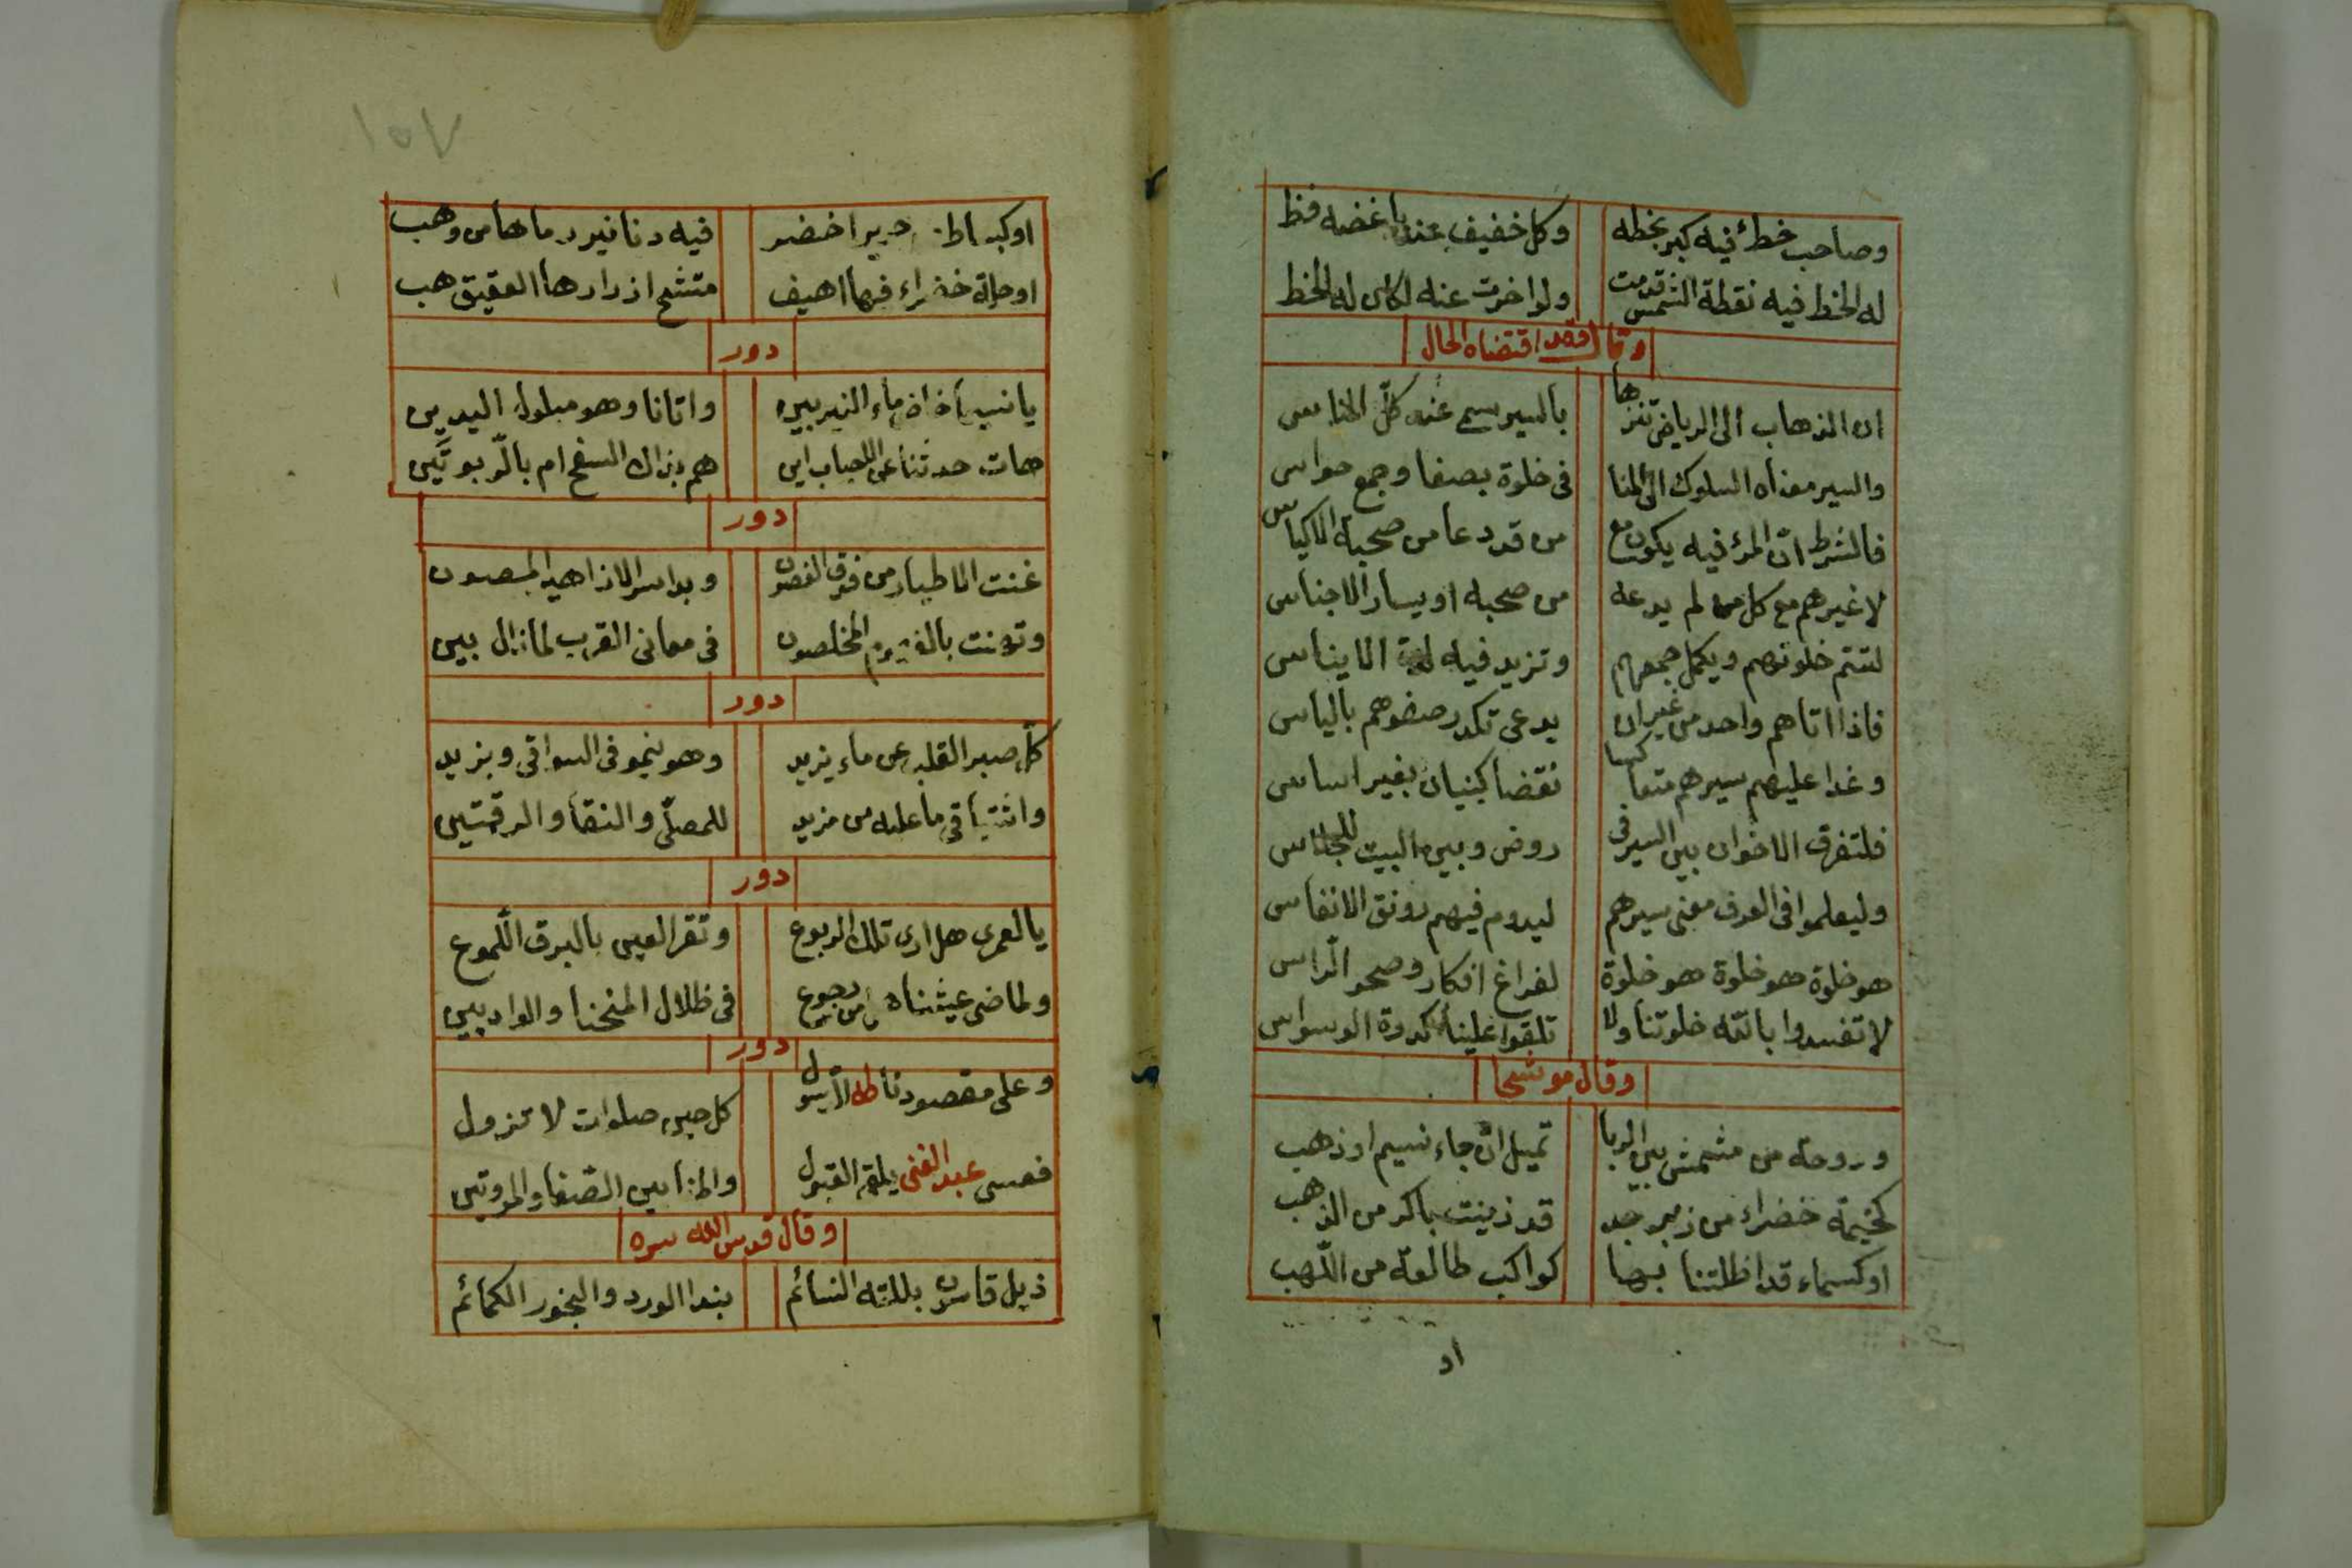 وصاحب خط فيه كبر بخطه وكل خفيف عند باغضه فظ
له الخط فيه نقطة الشمس قدمت ولو اخرت عنه لكان له الخط
وقال وقد اقتضاه الحال
ان الذهاب الى الرياض تنزها بالسير سمى عنه كل الناس
والسير معناه السلوك الى المنا فى خلوة بصفا وجمع حواس
فالشرط ان المرء فيه يكون مع من قد دعا من صحبة الاكياس
لا غيرهم مع كل من لم يدعه من صحبه او سار الاجناس
لتتم خلوتهم ويكمل جمعهم وتزيد فيه لهم الايناس
فاذا اتاهم واحد من غير ان يدعى تكدر صفوهم بالياس
وغدا عليهم سيرهم متعاكسا نقضا كبنيان بغير اساس
فلتفرق الاخوان بين السير فى روض وبين البيت للجلاس
وليعلموا فى العرف معنى سيرهم ليدوم فيهم رونق الانفاس
هو خلوة هو خلوة هو خلوة لفراغ افكار وصحو الراس
لا تفسدوا بالله خلوتنا ولا تلقوا علينا كدرة الوسواس
وقال موشحا
ودوحة من مشمش بين الربا تميل ان جاء نسيم او ذهب
كخيمة خضراء من زبرجد قد زينت باكر من الذهب
او كسماء قد اظلتنا بها كواكب طالعة من اللهب
او
١٥٧
او كبساط حرير اخضر فيه دنانير رماها من وهب
او حلة خضراء فيها اهيف متشح ازرارها العقيق هب
دور
يا نسيما خاض ماء النيربين واتانا وهو مبلول اليدين
هات حدثنا عن الاحباب اين هم بذاك السفح ام بالربوتين
دور
غنت الاطيار من فوق الغصون وبدا سر الازاهير المصون
وتهنت بالفهوم المخلصون فى معانى القرب لما زال بين
دور
كل صبر القلب عن ماء يزيد وهو ينمو فى السواقى ويزيد
واشتياقى ما عليه من مزيد للمصلى والنقا والرقمتين
دور
يا لعمرى هل ارى تلك الربوع وتقر العين بالبرق اللموع
ولماضى عيشنا من رجوع فى ظلال المنحنا والواديين
دور
وعلى مقصودنا طه الرسول كل حين صلوات لا تزول
فعسى عبد الغنى يلقى القبول والمنا بين الصفا والمروتين
وقال قدس الله سره
ذيل قاسون بللته النسائم بندا الورد والبخور الكمائم